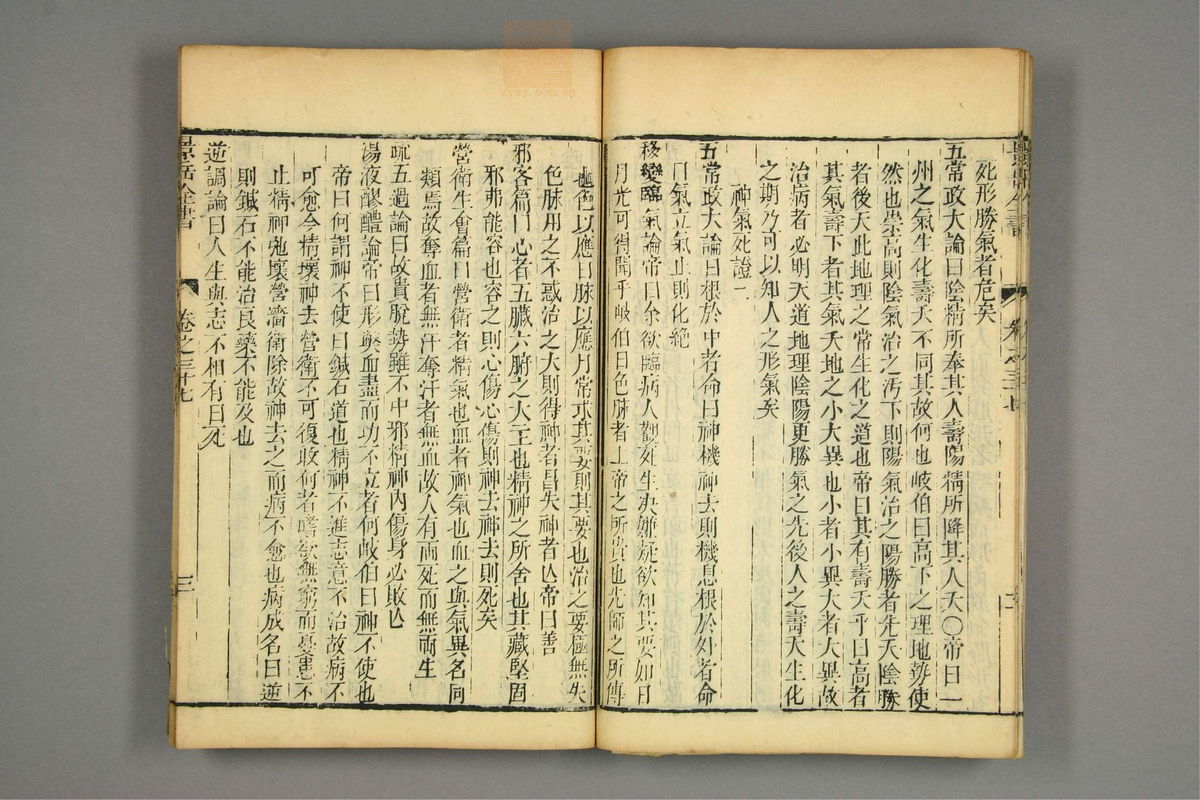 死形勝氣者危矣
五常政大論曰陰精所奉其人壽陽精所降其人夭〇帝曰一
州之氣生化壽夭不同其故何也岐伯曰高下之理地勢使
然也崇高則陰氣治之汚下則陽氣治之陽勝者先天陰勝
者後天此地理之常生化之道也帝曰其有壽夭乎曰高者
其氣壽下者其氣夭地之小大異也小者小異大者大異故
治病者必明天道地理陰陽更勝氣之先後人之壽夭生化
之期乃可以知人之形氣矣
神氣死證二
五常政大論曰根於中者命曰神機神去則機息根於外者命
曰氣立氣止則化絶
移變臨氣論帝曰余欲臨病人觀死生决嫌疑欲知其要如日
月光可得聞乎岐伯曰色脉者上帝之所貴也先師之所傳
也色以應日脉以應月常求其要則其要也治之要極無失
色脉用之不惑治之大則得神者昌失神者亾帝曰善
邪客篇曰心者五臟六腑之大主也精神之所舍也其藏堅固
邪弗能容也容之則心傷心傷則神去神去則死矣
營衛生會篇曰營衛者精氣也血者神氣也血之與氣異名同
類焉故奪血者無汗奪汗者無血故人有兩死而無兩生
疏五過論曰故貴脫勢雖不中邪精神内傷身必敗亾
湯液醪醴論帝曰形弊血盡而功不立者何岐伯曰神不使也
帝曰何謂神不使曰鍼石道也精神不進志意不治故病不
可愈今精壞神去營衛不可復收何者嗜欲無窮而憂患不
止精神弛壞營濇衛除故神去之而病不愈也病成名曰逆
則鍼石不能治良藥不能及也
逆調論曰人生與志不相有曰死
景岳全書
卷之三十七
三